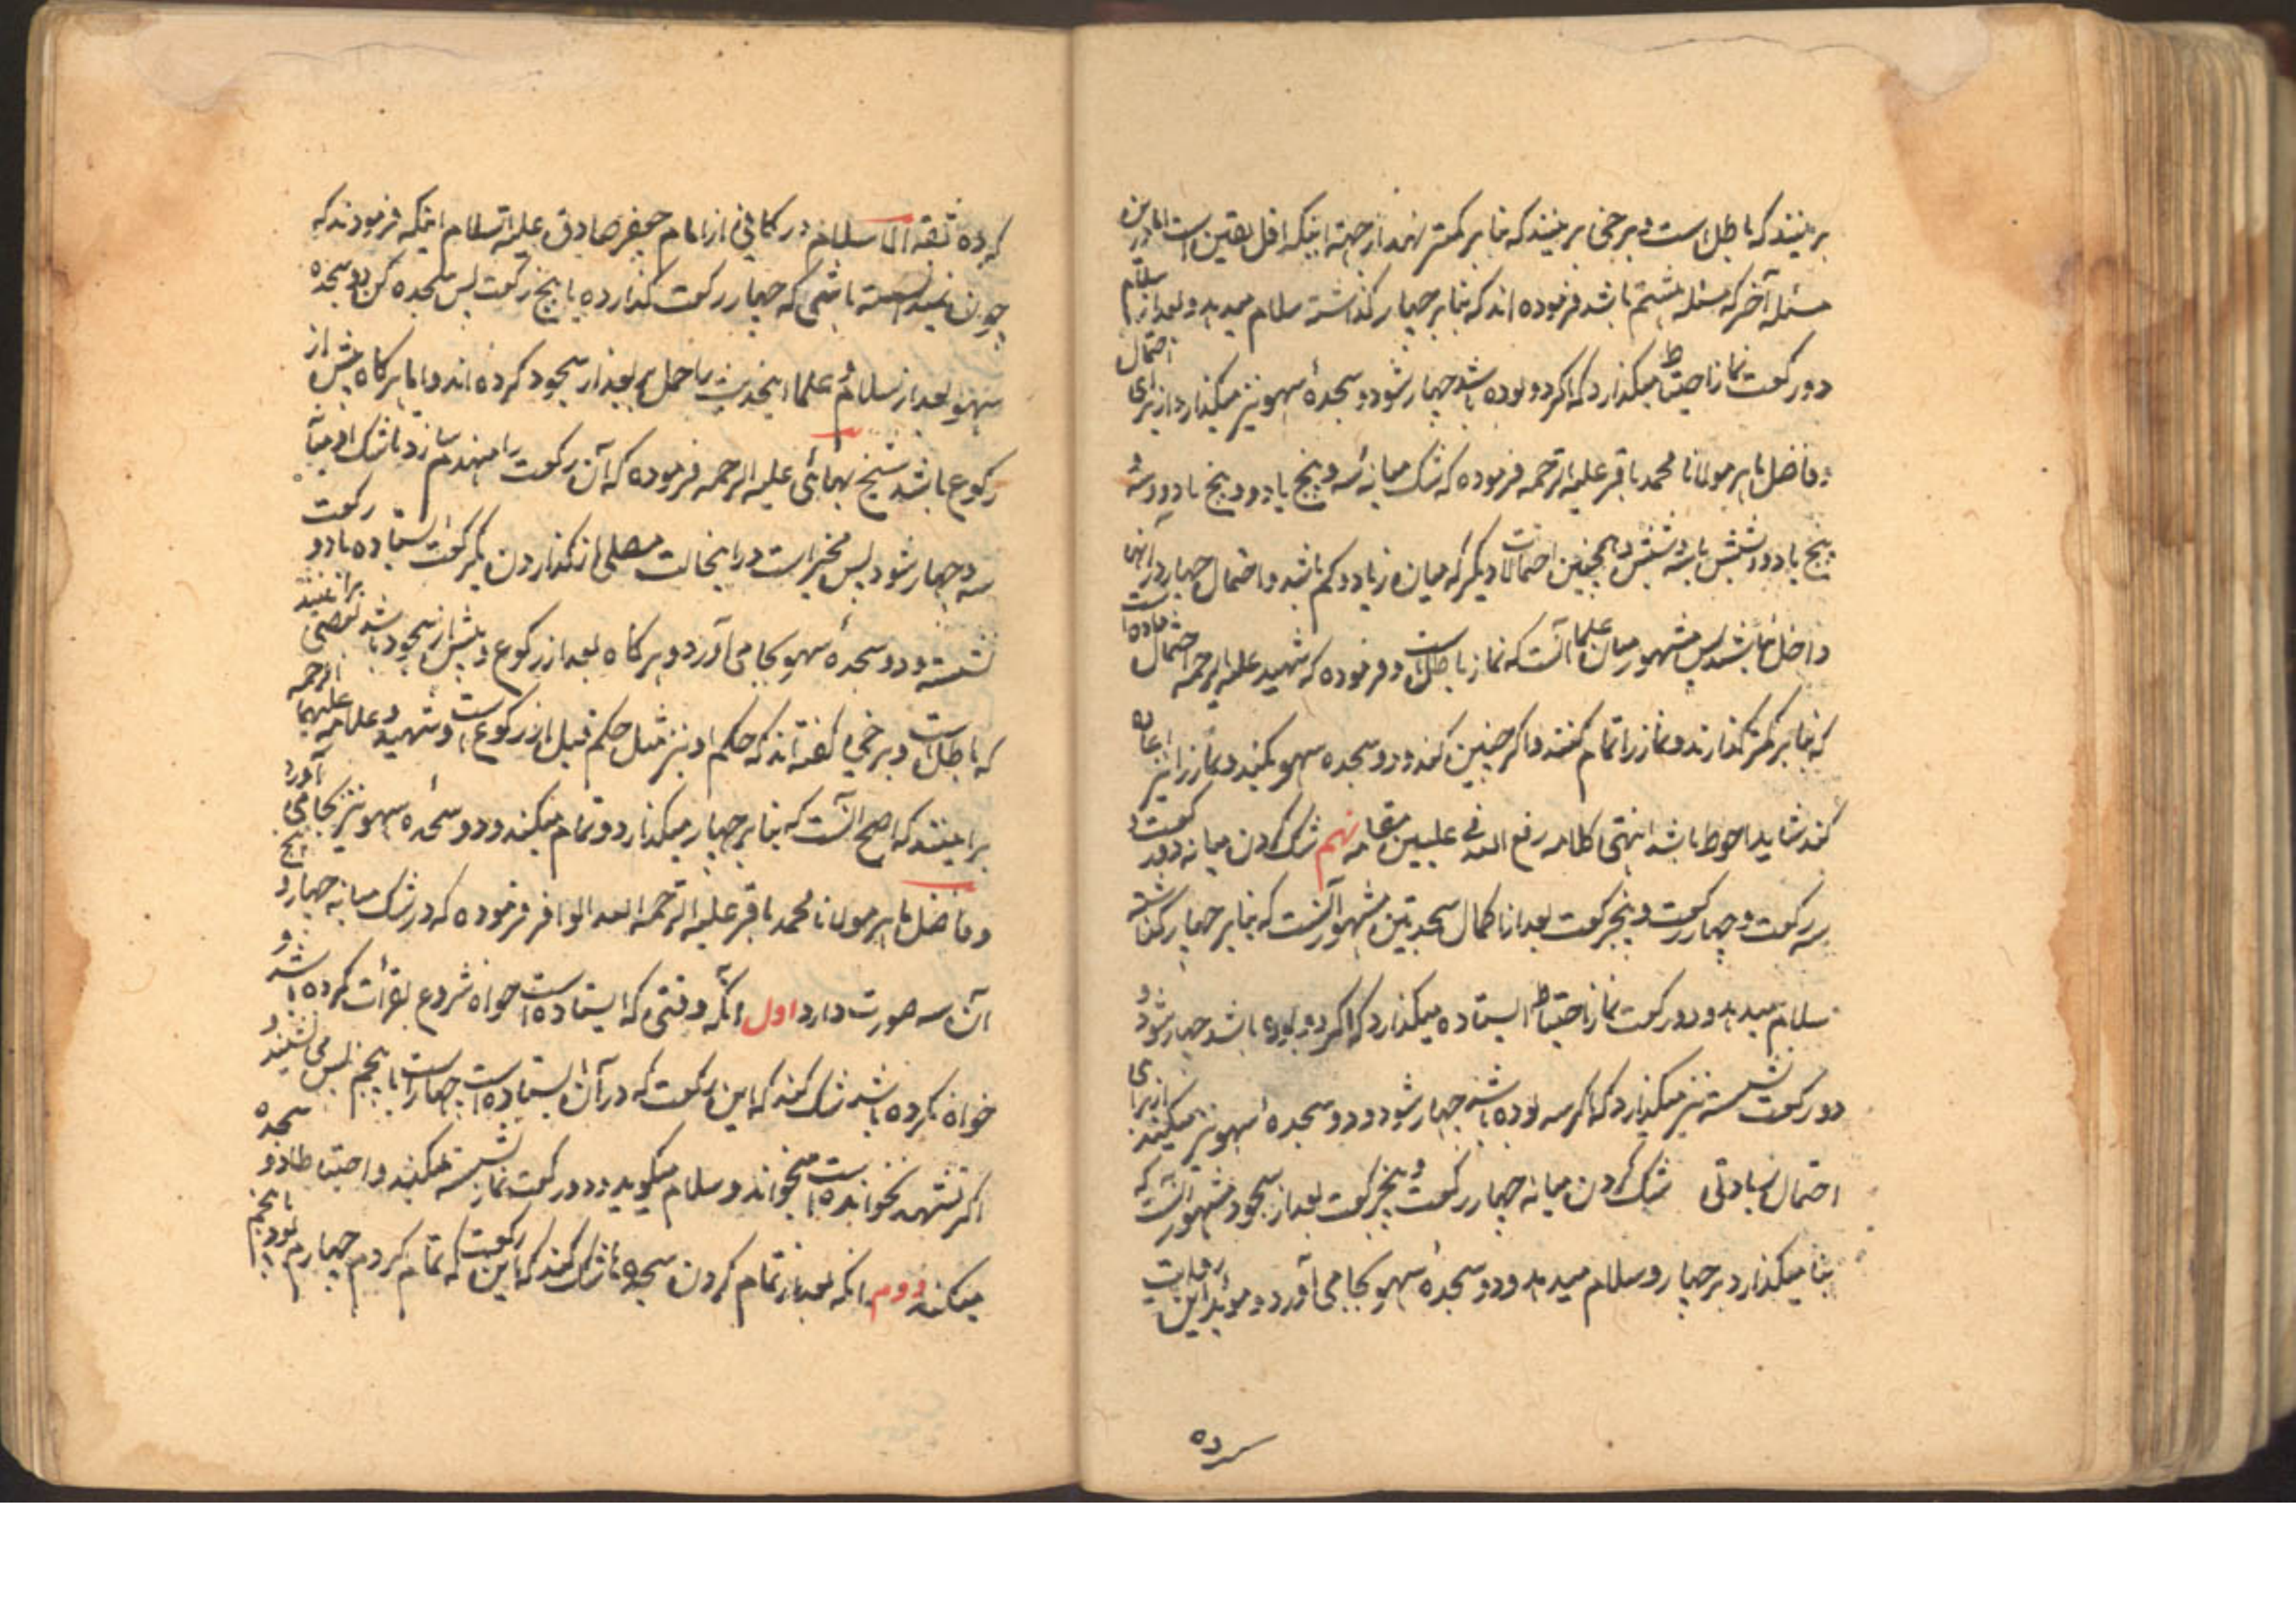 برینند که باطل است و برخی برینند که بنا بر کمتر نهد از جهة اینکه اقل یقین است اما در این
مسئله آخر که مسئله هشتم باشد فرموده اند که بنا بر چهار گذاشته سلام میدهد و بعد از سلام
دو رکعت نماز احتیاط میکذارد که اکر دو بوده باشد چهار شود و سجدهٔ سهو نیز میکذارد از برای احتمال
و فاضل ماهر مولانا محمد باقر علیه الرحمه فرموده که شک میانه سه و پنج یا دو و پنج یا دو و سه و
پنج یا دو و شش یا سه و شش و همچنین احتمالات دیگر که میان زیاد و کم باشد و احتمال چهار در آنها
داخل نباشد پس مشهور میان علما آنست که نماز باطل است و فرموده که شهید علیه الرحمه احتمال داده است
که بنا بر کمتر کذارند و نماز را تمام کنند و اکر چنین کند و دو سجده سهو بکند و نماز را نیز اعاده
کند شاید احوط باشد انتهی کلامه رفع الله فی علیین مقامه نهم شک کردن میانه دو رکعت و
سه رکعت و چهار رکعت و پنج رکعت بعد از اکمال سجدتین مشهور آنست که بنا بر چهار گذاشته
سلام میدهد و دو رکعت نماز احتیاط ایستاده میکذارد که اکر دو بوده باشد چهار شود و
دو رکعت نشسته نیز میکذارد که اکر سه بوده باشد چهار شود و دو سجدهٔ سهو نیز میکند از برای
احتمال زیادتی شک کردن میانه چهار رکعت و پنج رکعت بعد از سجود مشهور آنست که
بنا میکذارد بر چهار و سلام میدهد و دو سجدهٔ سهو بجا می آورد و مؤید این روایت
کرده
کرده ثقة الاسلام در کافی از امام جعفر صادق علیه السلام اینکه فرمودند که
چون ندانسته باشی که چهار رکعت کذارده یا پنج رکعت پس سجده کن دو سجده
سهو بعد از سلام و علما اینحدیث را حمل بر بعد از سجود کرده اند و اما هر کاه پیش از
رکوع باشد شیخ بهائی علیه الرحمه فرموده که آن رکعت را منهدم سازد تا شک او میانهٔ
سه و چهار شود پس مخیر است در اینحالت مصلی از کذاردن یک رکعت ایستاده یا دو رکعت
نشسته و دو سجدهٔ سهو بجا می آورد و هر کاه بعد از رکوع و پیش از سجود باشد بعضی برآنند
که باطل است و برخی کفته اند که حکم او نیز مثل حکم قبل از رکوع است و شهید و علامه علیهما الرحمه
برآنیند که اصح آنست که بنا بر چهار میکذارد و تمام میکند و دو سجدهٔ سهو نیز بجا می آورد
و فاضل ماهر مولانا محمد باقر علیه الرحمه الله الوافر فرموده که در شک میانه چهار و پنج
آن سه صورت دارد اول آنکه وقتی که ایستاده است خواه شروع بقرأت کرده باشد و
خواه نکرده باشد شک کند که این رکعت که در آن ایستاده است چهار است یا پنجم پس می نشیند و
اکر تشهد نخوانده است میخواند و سلام میکوید و دو رکعت نماز نشسته میکند و احتیاطا دو سجده
میکند دوم آنکه بعد از تمام کردن سجده ها شک کند که این رکعت که تمام کردم چهارم بود یا پنجم